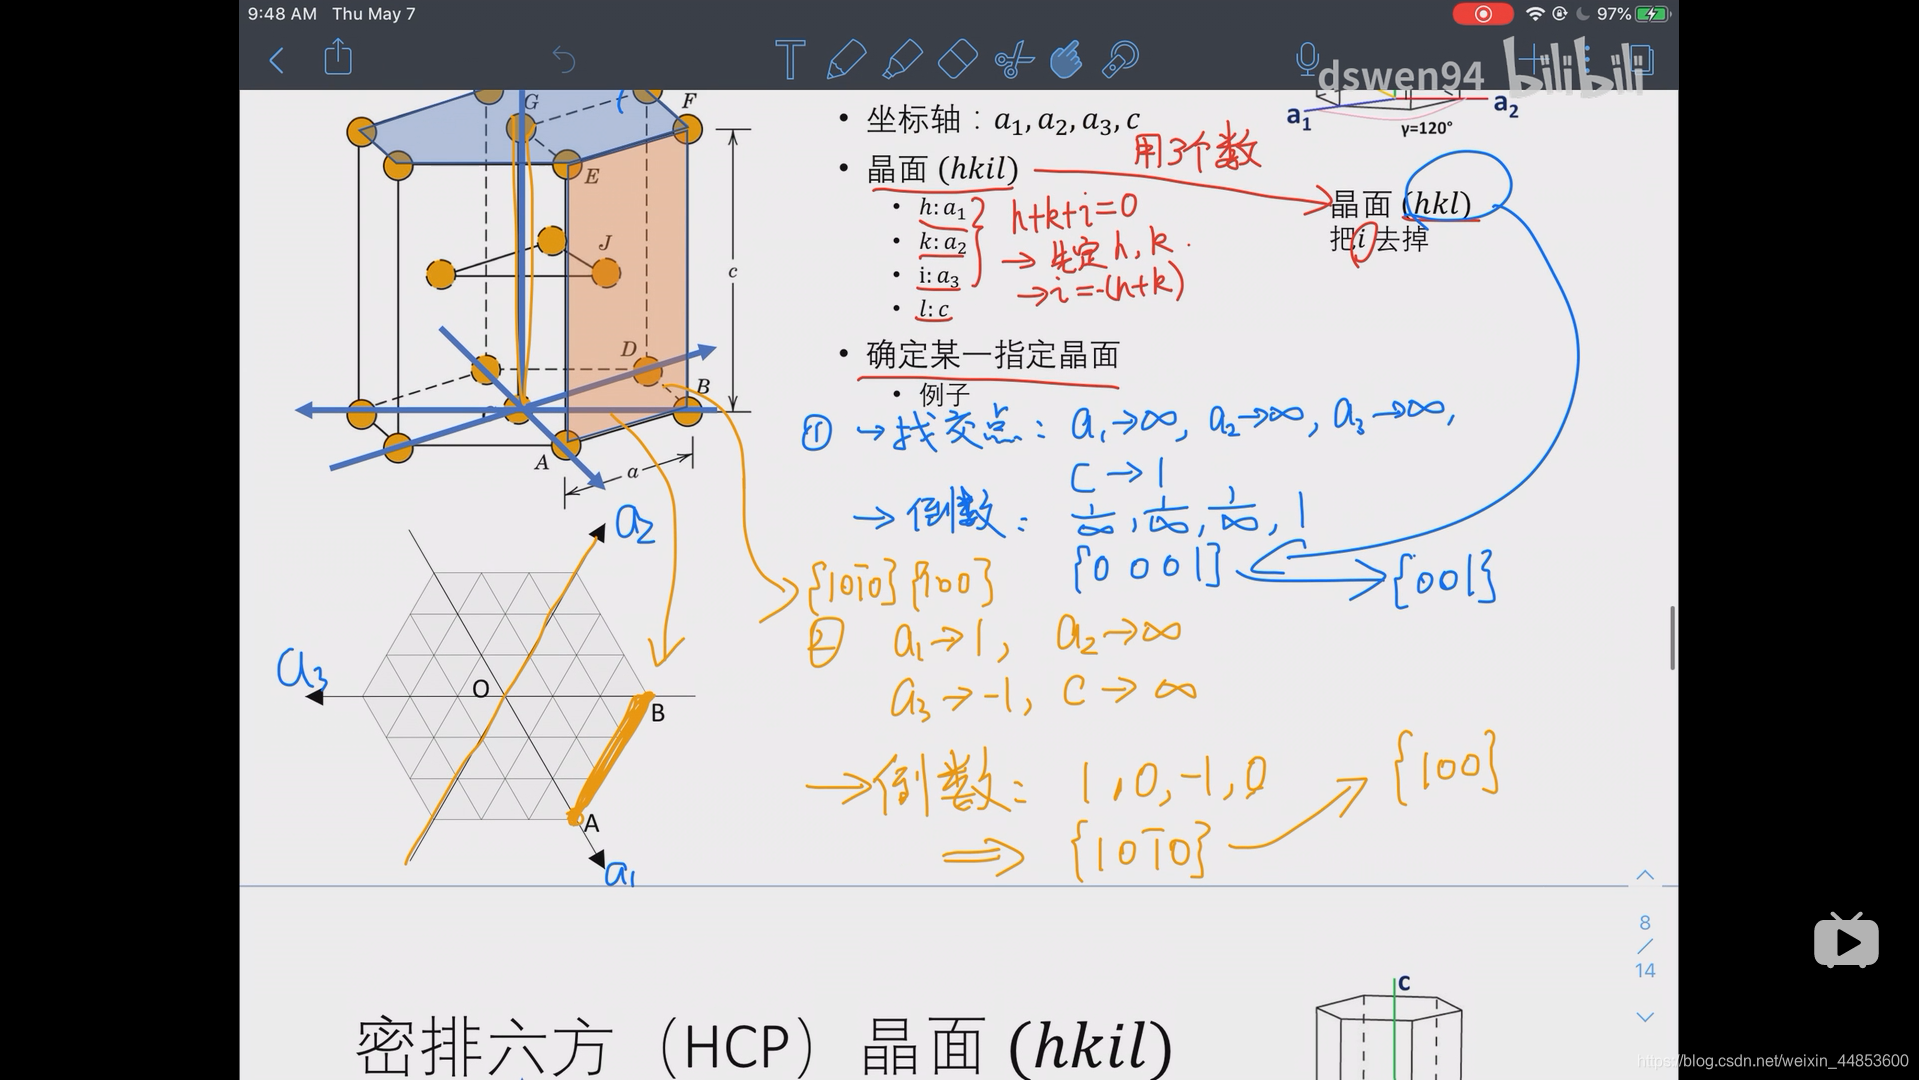 9:48 AM Thu May 7
97%
dswen94 bilibili
G
F
E
J
c
D
B
A
a
a₁
a₂
γ=120°
• 坐标轴：a₁, a₂, a₃, c
• 晶面 (hkil)
用3个数
晶面 (hkl)
把i去掉
• h: a₁
• k: a₂
• i: a₃
• l: c
h+k+i=0
→ 先定 h, k.
→ i=-(h+k)
• 确定某一指定晶面
• 例子
① → 找交点： a₁→∞, a₂→∞, a₃→∞,
C → 1
→ 倒数： 1/∞, 1/∞, 1/∞, 1
{0 0 0 1}
{001}
{101̄0} {100}
② a₁→1, a₂→∞
a₃→-1, C→∞
→ 倒数： 1, 0, -1, 0
⇒ {101̄0}
{100}
a₂
a₃
O
B
A
a₁
8
/
14
密排六方（HCP）晶面 (hkil)
c
https://blog.csdn.net/weixin_44853600